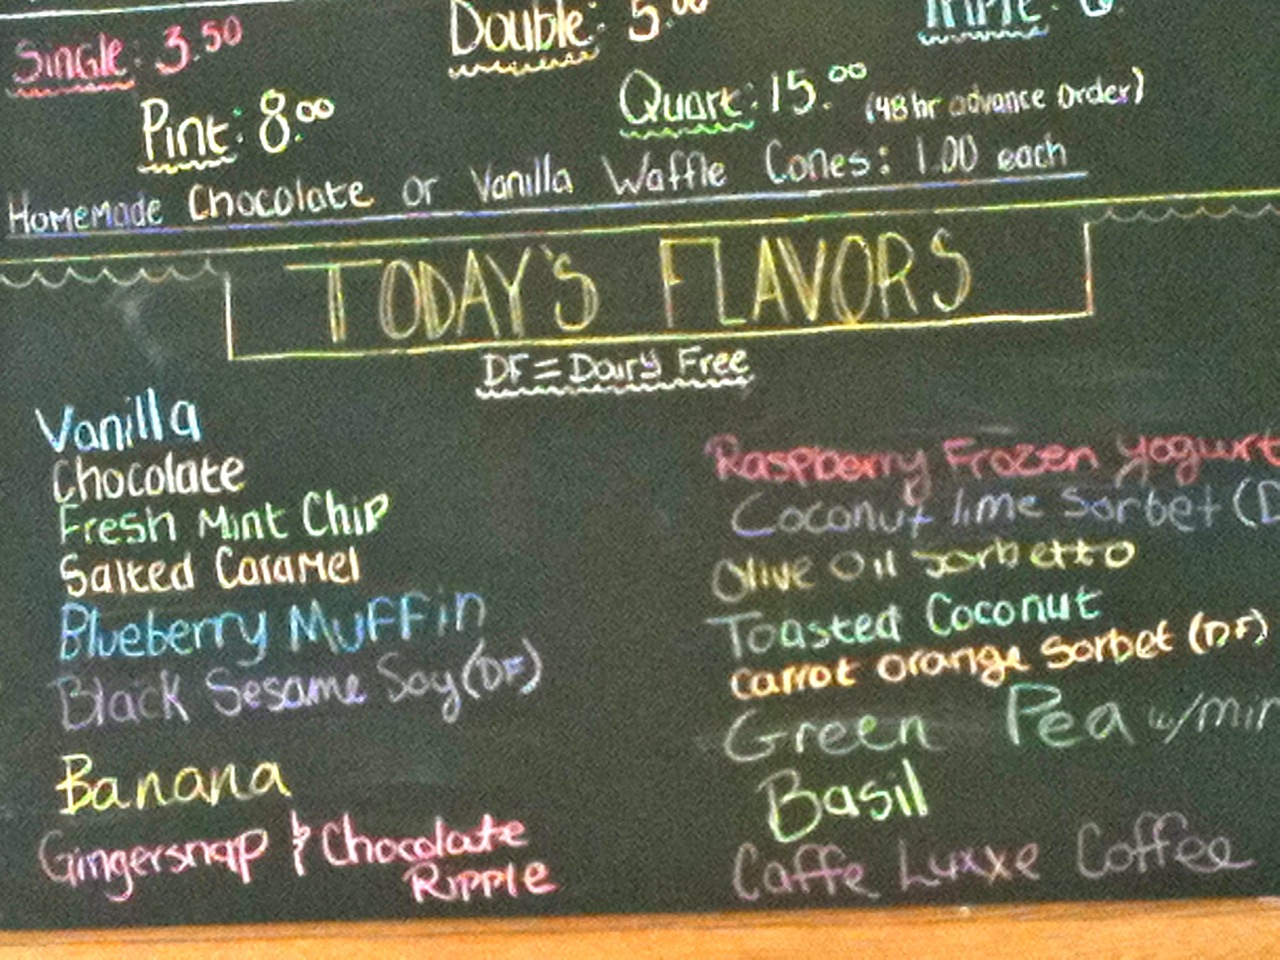 Single: 3.50
Double: 5.00
Triple:
Pint: 8.00
Quart: 15.00 (48hr advance order)
Homemade Chocolate or Vanilla Waffle Cones: 1.00 each
TODAY'S FLAVORS
DF = Dairy Free
Vanilla
Chocolate
Fresh Mint Chip
Salted Caramel
Blueberry Muffin
Black Sesame Soy (DF)
Banana
Gingersnap & Chocolate
Ripple
Raspberry Frozen Yogurt
Coconut lime Sorbet (D
Olive Oil Sorbetto
Toasted Coconut
Carrot Orange Sorbet (DF)
Green Pea w/min
Basil
Caffe Luxxe Coffee